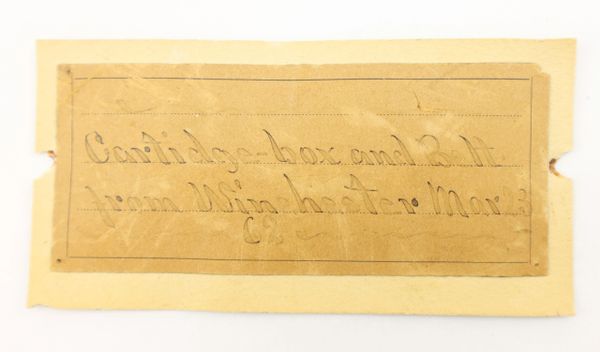 Cartidge-box and Belt
from Winchester Mar 23
62